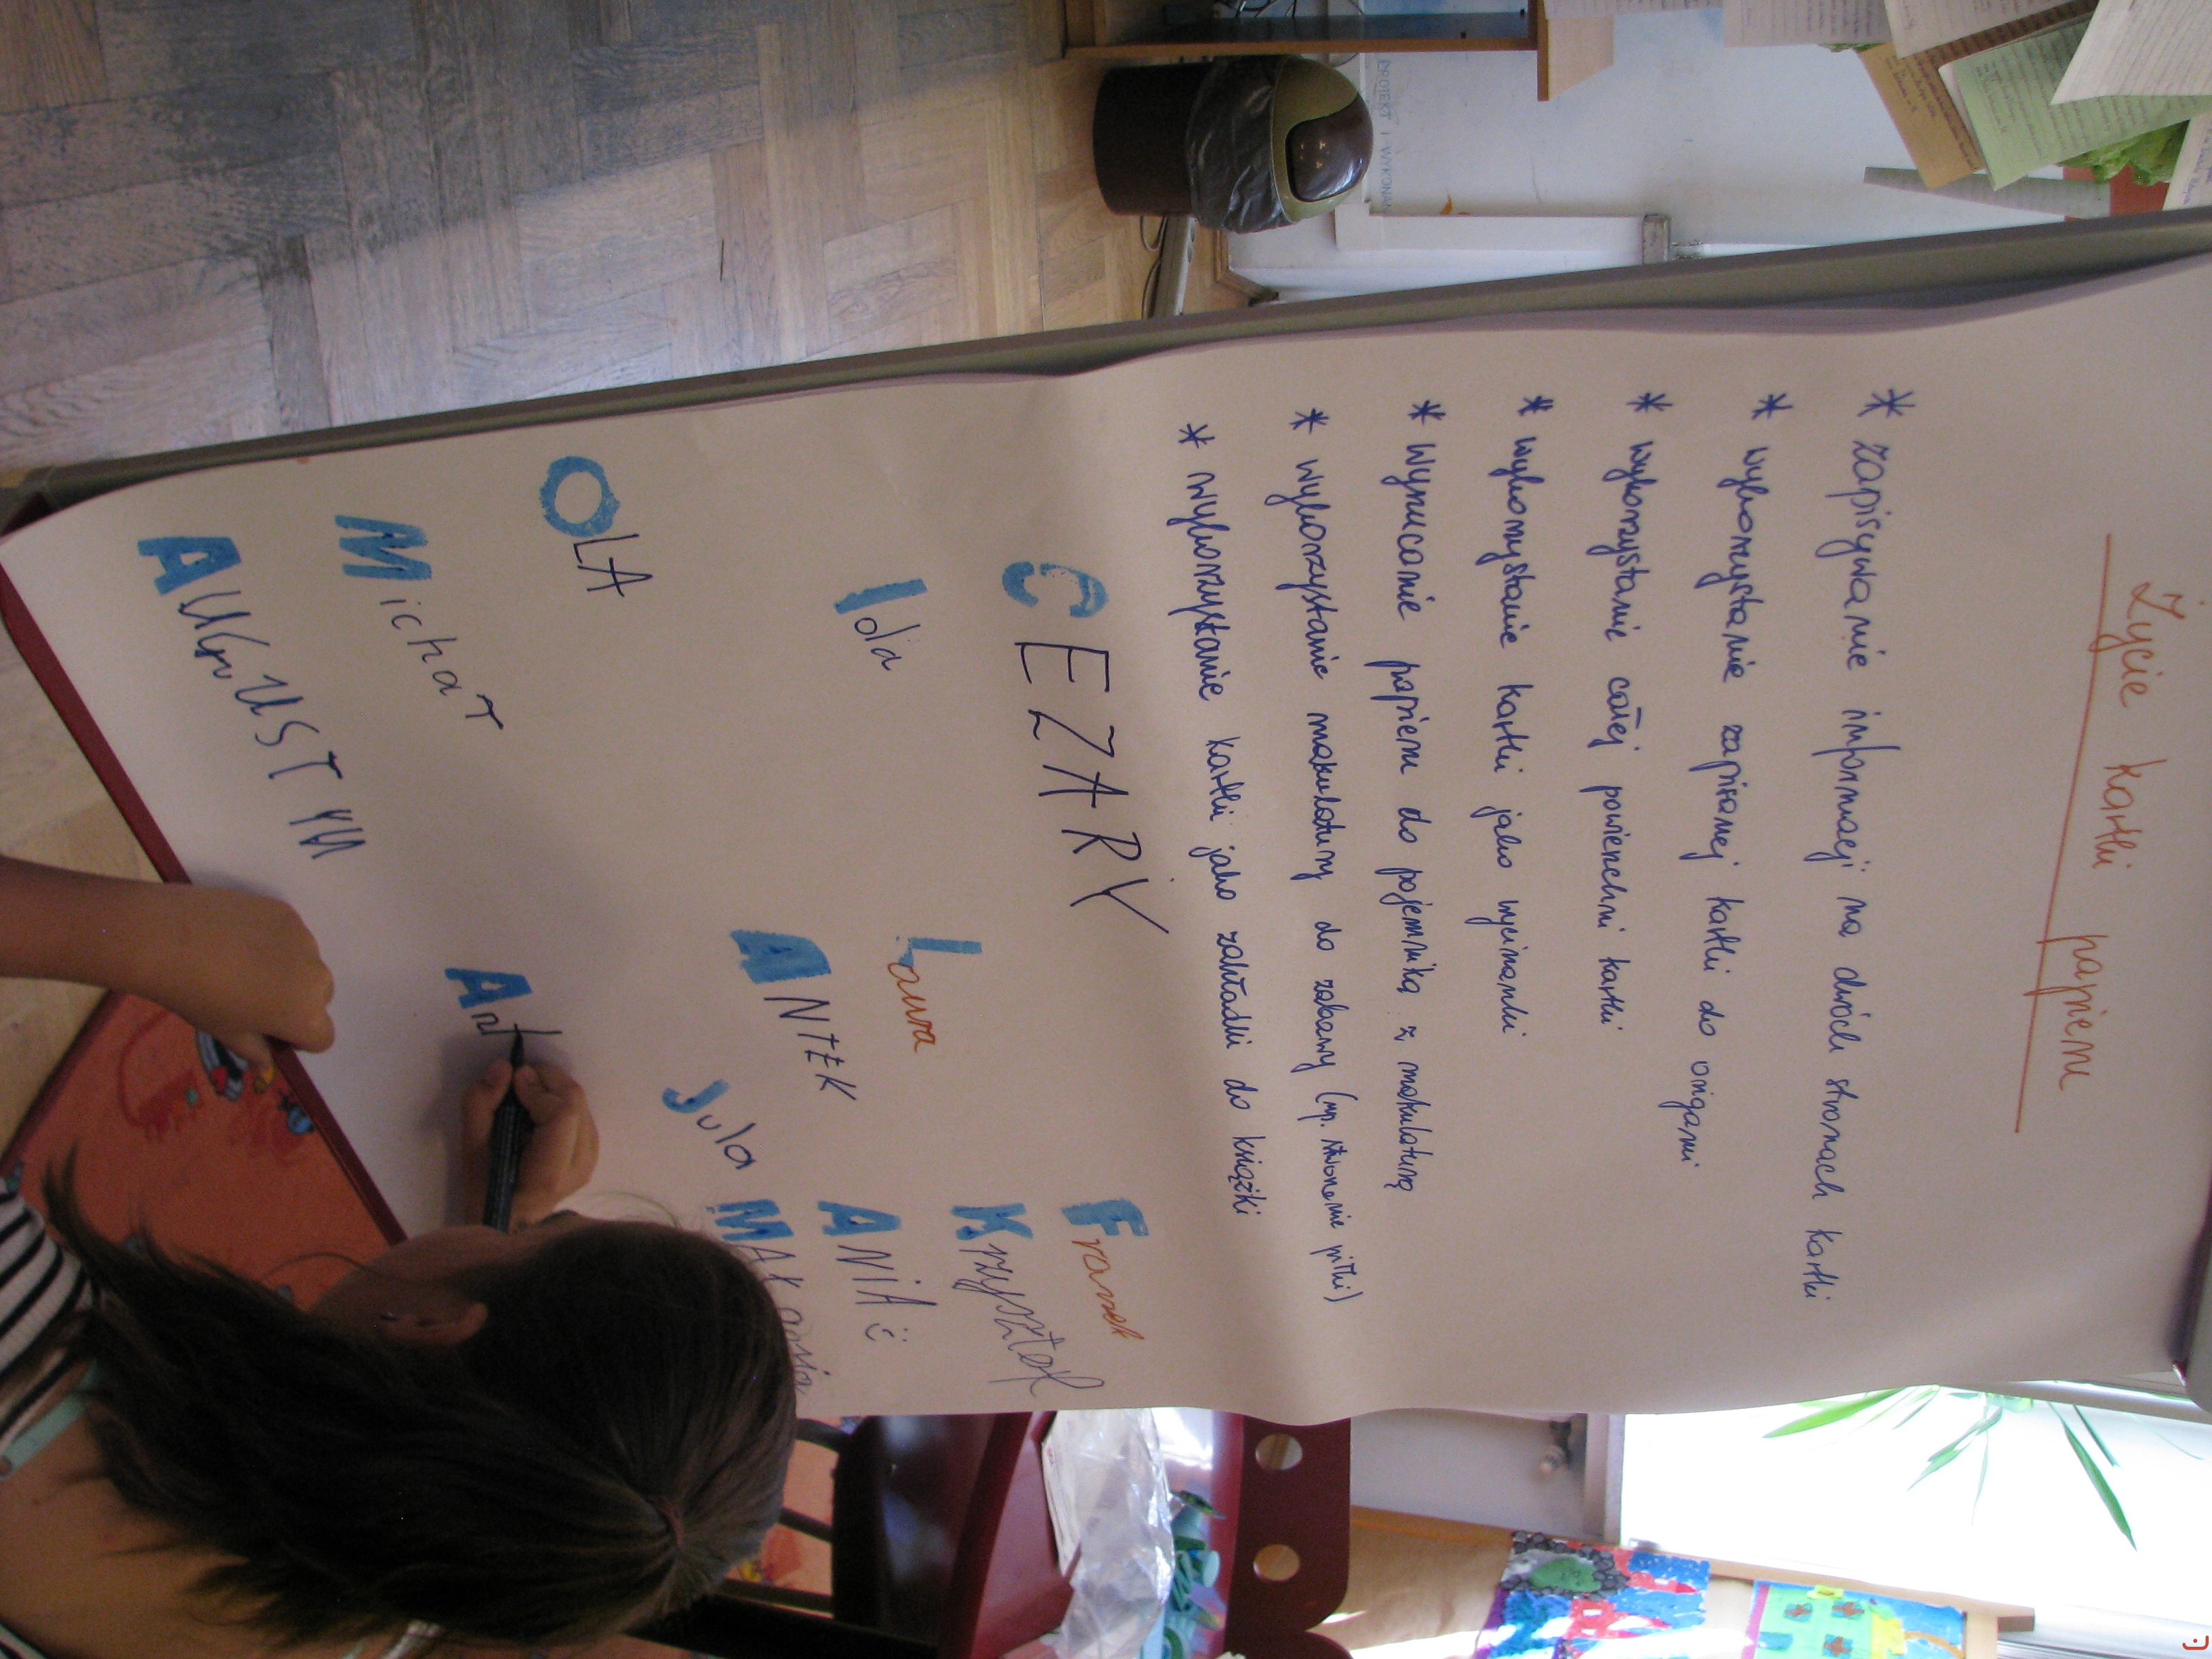 Życie kartki papieru
* zapisywanie informacji na dwóch stronach kartki
* wykorzystanie zapisanej kartki do origami
* wykorzystanie całej powierzchni kartki
* wykorzystanie kartki jako wycinanki
* wyrzucanie papieru do pojemnika z makulaturą
* wykorzystanie makulatury do zabawy (np. stworzenie piłki)
* wykorzystanie kartki jako zakładki do książki
CEZARY
Franek
Ida
Laura
Krzysztof
ANTEK
ANIA :)
OLA
Jula
Michał
Ant
AUGUSTYN
PROJEKT I WYKONAN